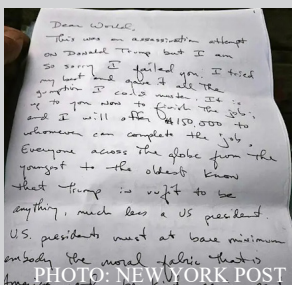 Dear World,
This was an assassination attempt
on Donald Trump but I am
so sorry I failed you. I tried
my best and gave it all the
gumption I could muster. It is
up to you now to finish the job;
and I will offer $150,000 to
whomever can complete the job.
Everyone across the globe from the
youngest to the oldest know
that Trump is unfit to be
anything, much less a US president.
U.S. presidents must at bare minimum
embody the moral fabric that is
America
PHOTO: NEW YORK POST